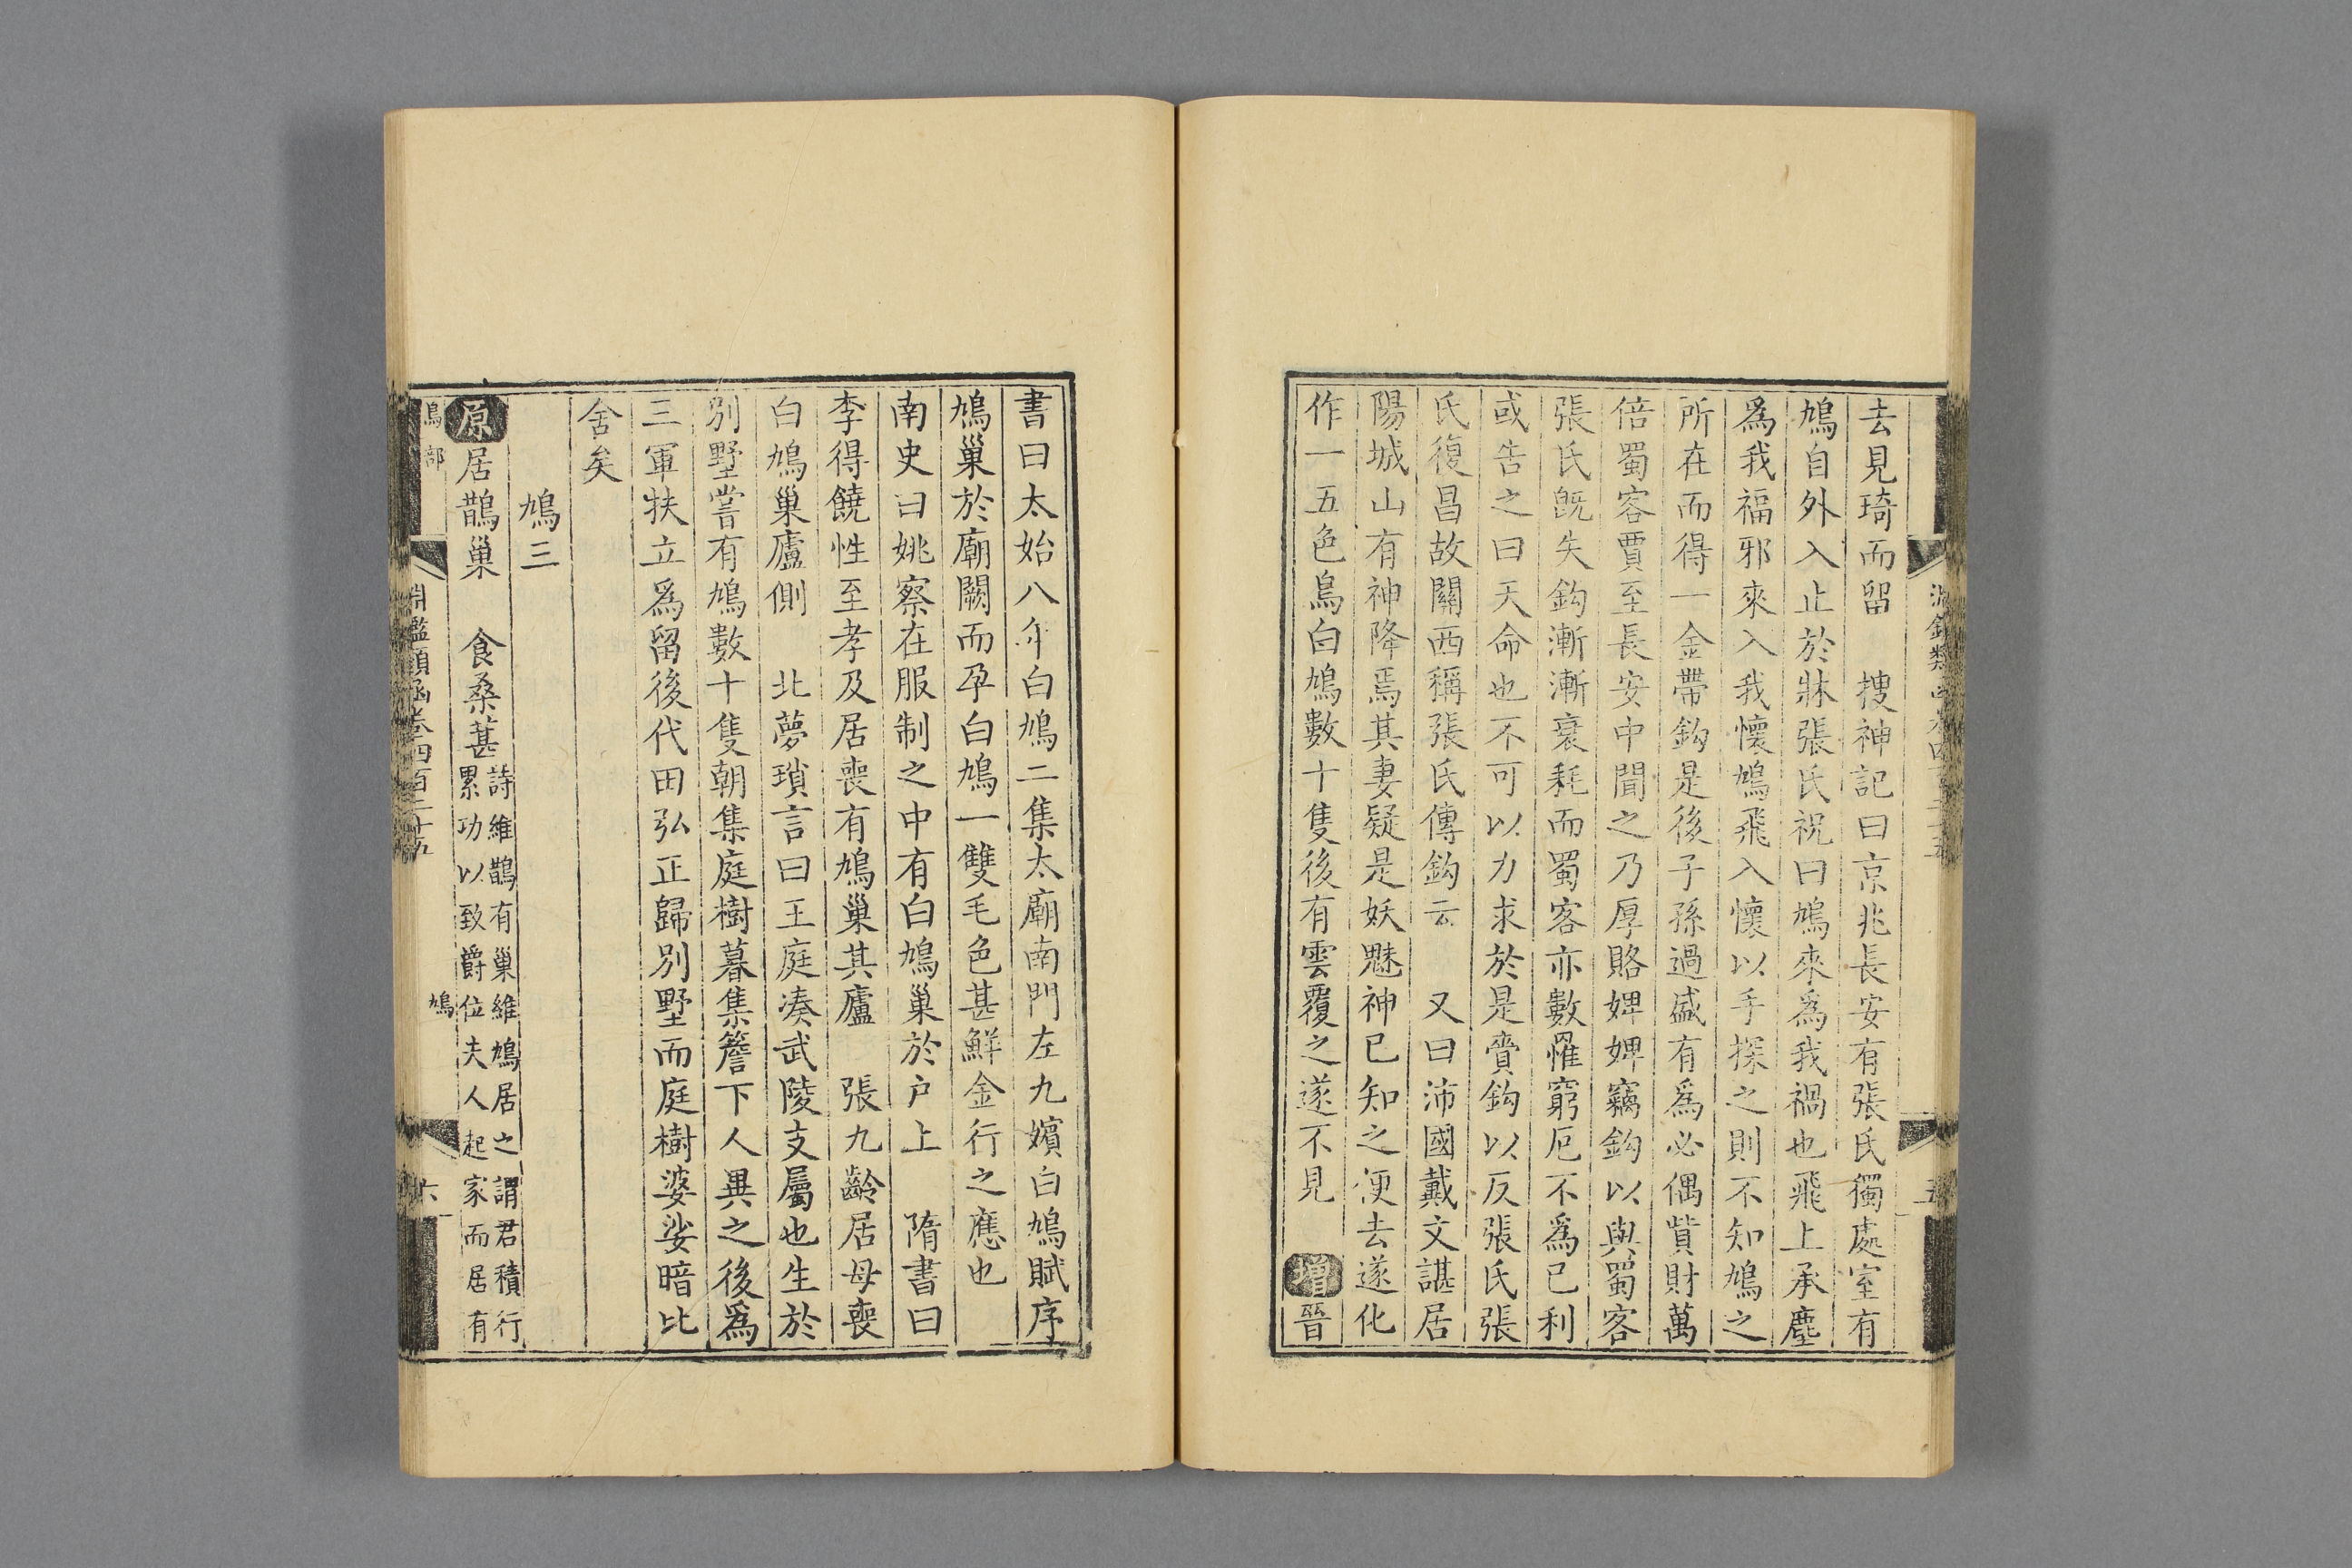 去見琦而留　搜神記曰京兆長安有張氏獨處室有
鳩自外入止於牀張氏祝曰鳩來爲我禍也飛上承塵
爲我福邪來入我懷鳩飛入懷以手探之則不知鳩之
所在而得一金帶鈎是後子孫過盛有爲必偶貲財萬
倍蜀客賈至長安中聞之乃厚賂婢婢竊鈎以與蜀客
張氏旣失鈎漸漸衰耗而蜀客亦數罹窮厄不爲己利
或告之曰天命也不可以力求於是賫鈎以反張氏張
氏復昌故關西稱張氏傳鈎云　又曰沛國戴文諶居
陽城山有神降焉其妻疑是妖魅神已知之便去遂化
作一五色鳥白鳩數十隻後有雲覆之遂不見　增晉
書曰太始八年白鳩二集太廟南門左九嬪白鳩賦序
鳩巢於廟闕而孕白鳩一雙毛色甚鮮金行之應也
南史曰姚察在服制之中有白鳩巢於户上　隋書曰
李得饒性至孝及居喪有鳩巢其廬　張九齡居母喪
白鳩巢廬側　北夢瑣言曰王庭湊武陵支屬也生於
別墅嘗有鳩數十隻朝集庭樹暮集簷下人異之後爲
三軍扶立爲留後代田弘正歸別墅而庭樹婆娑暗比
舍矣
鳩三
原居鵲巢　食桑葚詩維鵲有巢維鳩居之謂君積行
累功以致爵位夫人起家而居有
鳥部
淵鑑類函卷四百二十五
鳩
六